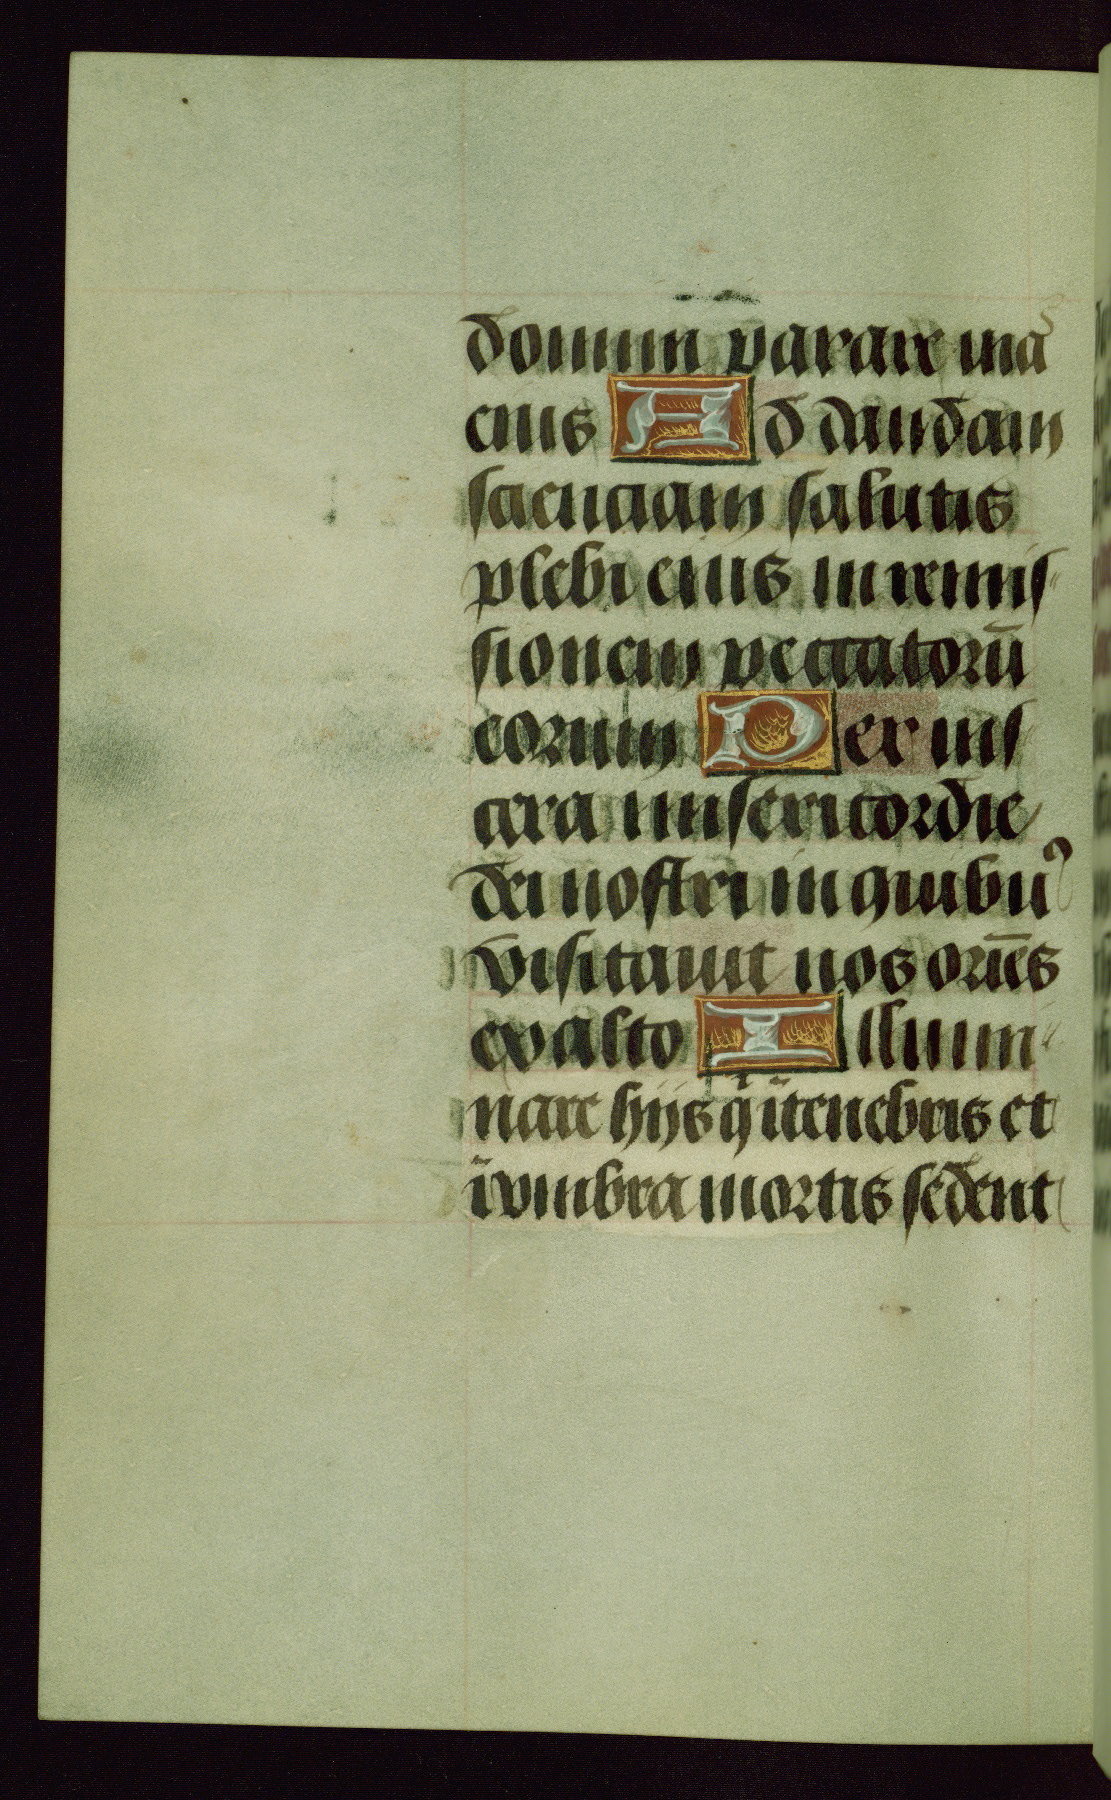 domini parare uias
eius Ad dandam
scienciam salutis
plebi eius in remis-
sionem peccatorū
eorum Per uis
cera misericordie
dei nostri in quibuꝰ
visitauit nos oriēs
ex alto Illumi-
nare hijs q̄ ī tenebris et
ī vmbra mortis sedent